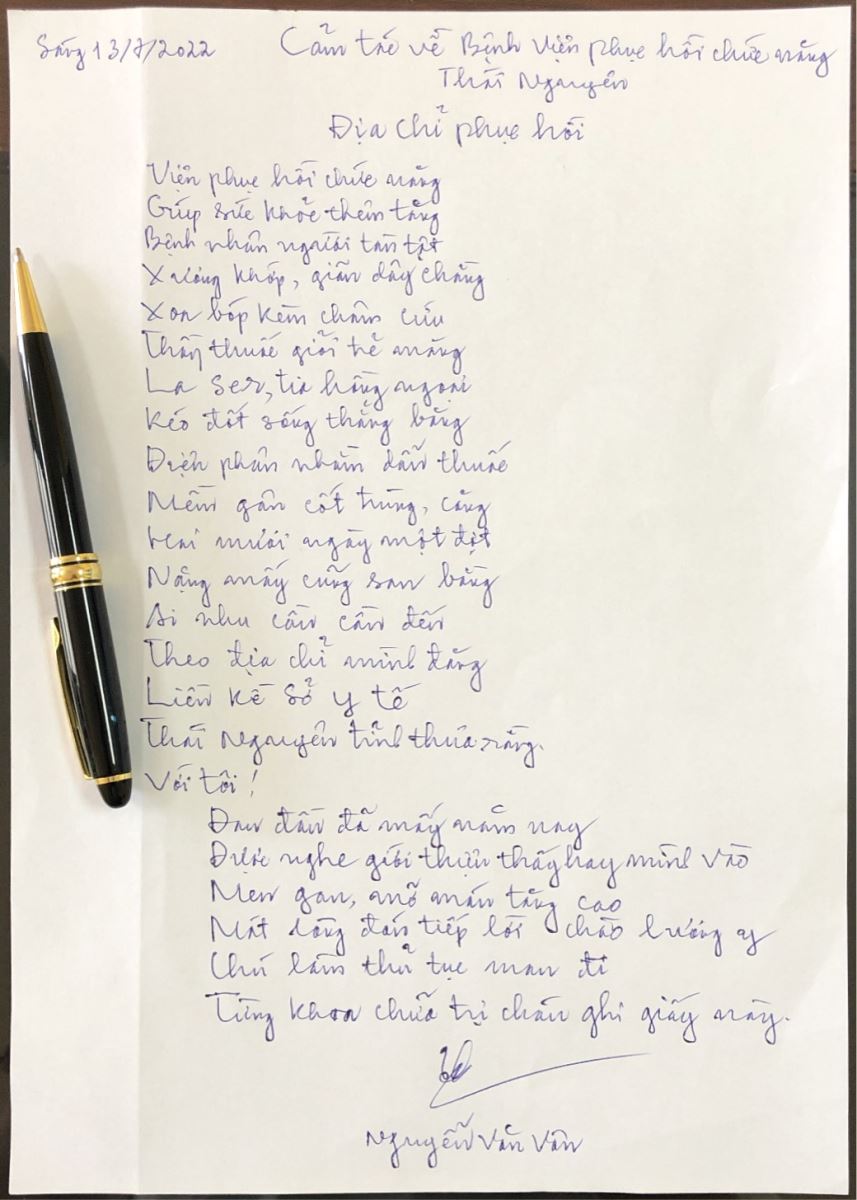 Sáng 13/7/2022
Cảm tác về Bệnh Viện phục hồi chức năng
Thái Nguyên
Địa chỉ phục hồi
Viện phục hồi chức năng
Giúp sức khỏe thêm tăng
Bệnh nhân người tàn tật
Xương khớp, giãn dây chằng
Xoa bóp kèm châm cứu
Thầy thuốc giỏi trẻ măng
La Ser, tia hồng ngoại
Kéo đốt sống thẳng bằng
Điện phân nhằm dẫn thuốc
Mềm gân cốt trùng, căng
Hai mươi ngày một đợt
Nặng mấy cũng san bằng
Ai nhu cầu cần đến
Theo địa chỉ mình đăng
Liền kề Sở y tế
Thái Nguyên tỉnh thưa rằng.
Với tôi!
Đau đầu đã mấy năm nay
Được nghe giới thiệu thầy hay mình vào
Men gan, mỡ máu tăng cao
Mát lòng đón tiếp lời chào lương y
Chú làm thủ tục mau đi
Từng khoa chữa trị chẩn ghi giấy này.
Nguyễn Văn Vân